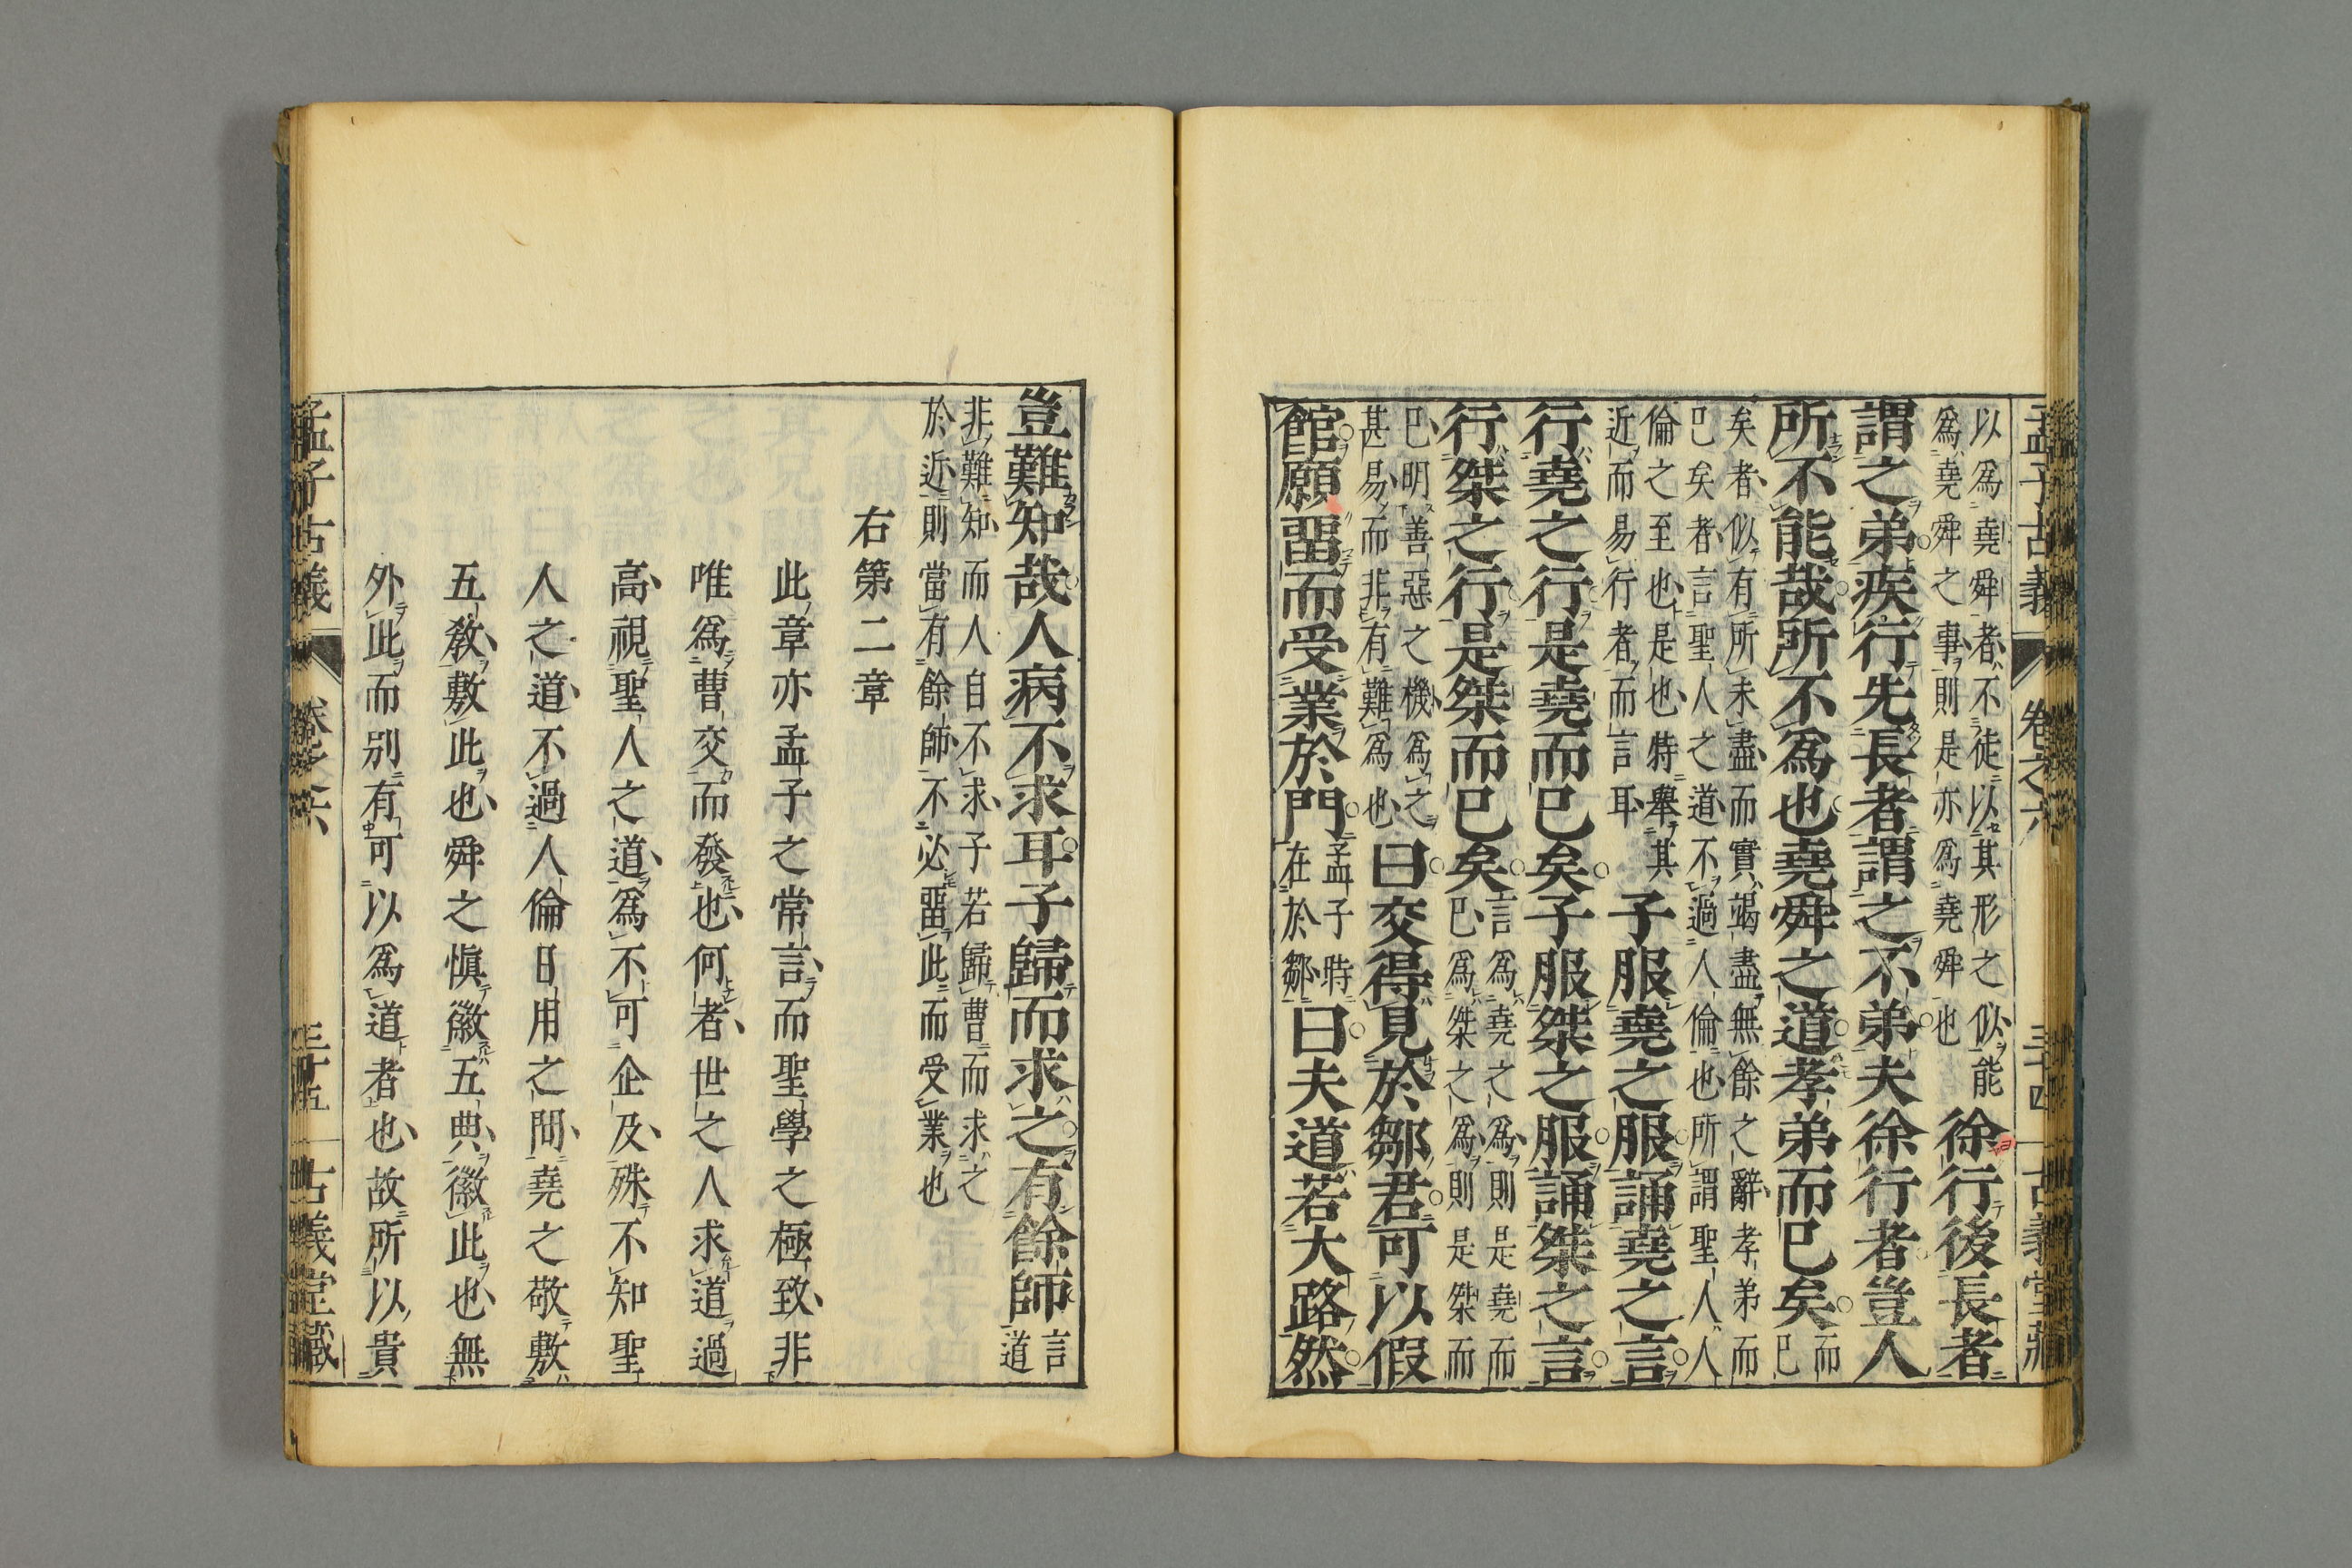 孟子古義 卷之六 三十四 古義堂藏
以爲堯舜者不徒以其形之似能
爲堯舜之事則是亦爲堯舜也
徐行後長者
謂之弟疾行先長者謂之不弟夫徐行者豈人
所不能哉所不爲也堯舜之道孝弟而已矣
而
已
矣者似有所未盡而實竭盡無餘之辭孝弟而
已矣者言聖人之道不過人倫也所謂聖人人
倫之至也是也特舉其
近而易行者而言耳
子服堯之服誦堯之言
行堯之行是堯而已矣子服桀之服誦桀之言
行桀之行是桀而已矣
言爲堯之爲則是堯而
已爲桀之爲則是桀而
已明善惡之機爲之
甚易而非有難爲也
曰交得見於鄒君可以假
館願畱而受業於門
孟子時
在於鄒
曰夫道若大路然
豈難知哉人病不求耳子歸而求之有餘師
言
道
非難知而人自不求子若歸曹而求之
於近則當有餘師不必畱此而受業也
右第二章
此章亦孟子之常言而聖學之極致非
唯爲曹交而發也何者世之人求道過
高視聖人之道爲不可企及殊不知聖
人之道不過人倫日用之間堯之敬敷
五教敷此也舜之愼徽五典徽此也無
外此而別有可以爲道者也故所以貴
孟子古義 卷之六 三十五 古義堂藏